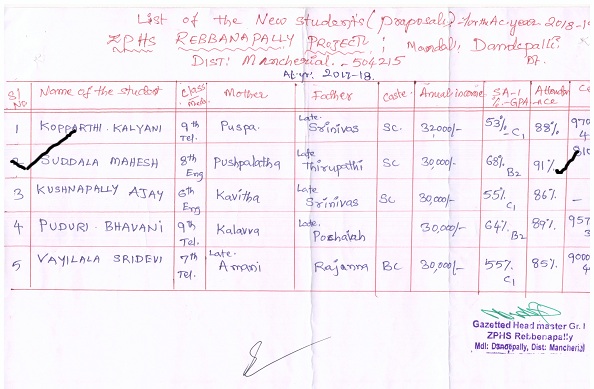 List of the New students (Proposals) for the Ac. year 2018-19
ZPHS REBBANAPALLY PROJECT; Mandal: Dandepalli
DIST: Mancherial - 504215
2017-18.
Sl No Name of the student Class Med. Mother Father Caste Annual income SA-1 %-GPA Attendance Ce
1 KOPPARTHI. KALYANI 9th Tel. Puspa. Late. Srinivas SC. 32000/- 53% C1 88% 970
2 SUDDALA MAHESH 8th Eng Pushpalatha Late Thirupathi SC 30,000/- 68% B2 91% 810
3 KUSHNAPALLY AJAY 6th Eng Kavitha Late Srinivas SC 30,000/- 55% C1 86% -
4 PUDURI. BHAVANI 9th Tel. Kalavva Late. Poshaiah 30,000/- 64% B2 89% 957
5 VAYILALA SRIDEVI 7th Tel. Late. Amani Rajanna BC 30,000/- 55% C1 85% 9000
Gazetted Head master Gr. I
ZPHS Rebbenapally
Mdl: Dandepally, Dist: Mancherial